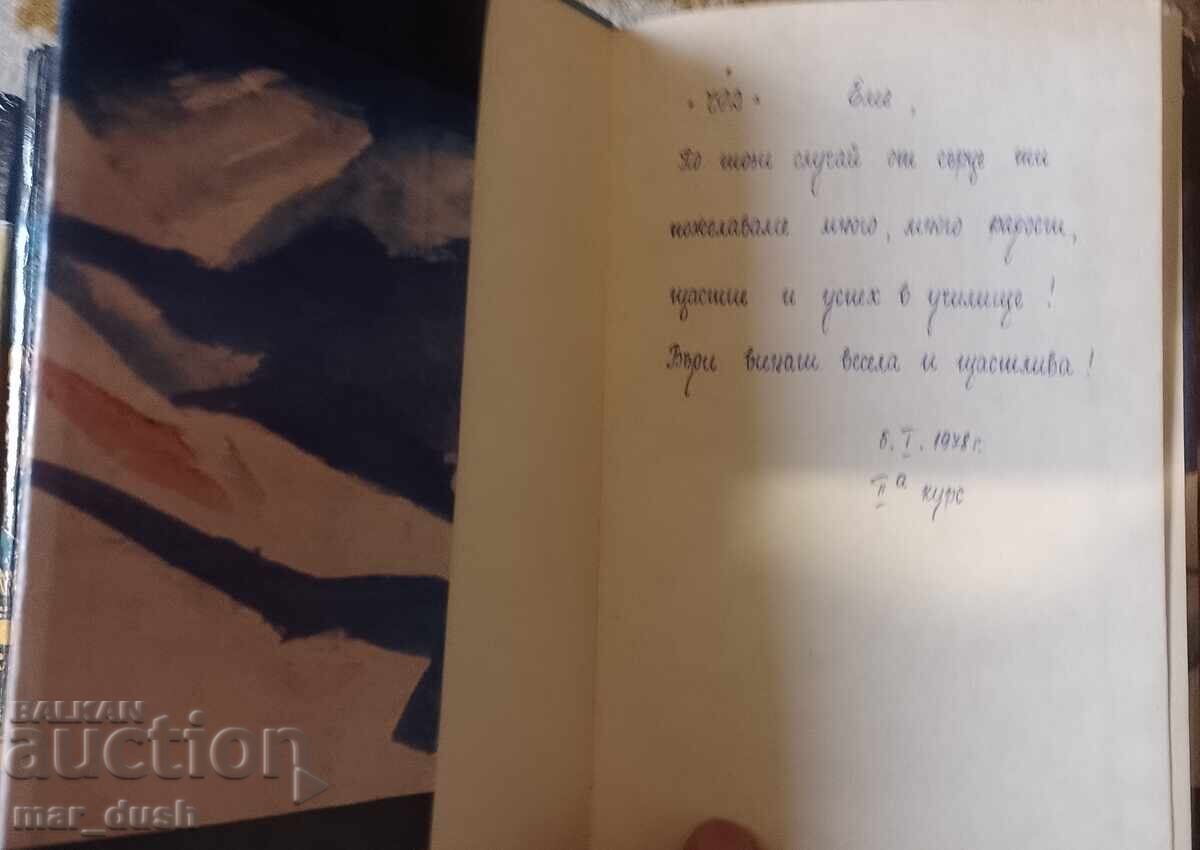 Еме,
По този случай от сърце ти
пожелаваме много, много радост,
щастие и успех в училище!
Бъди винаги весела и щастлива!
6. I. 1978 г.
IIа курс
BALKAN
auction
mar_dush